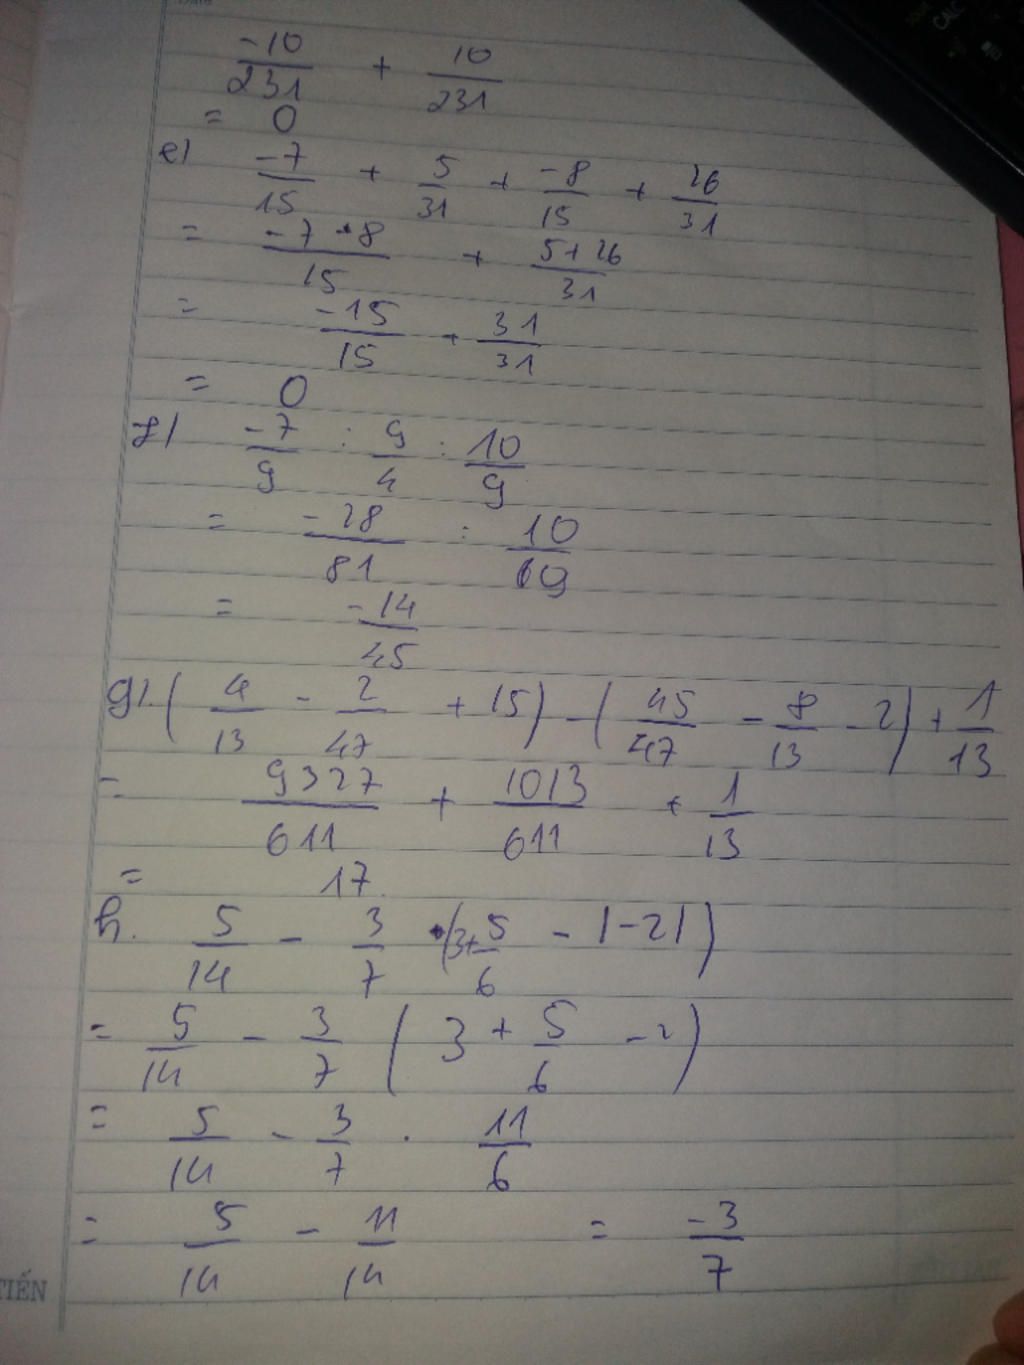 -10/231 + 10/231
= 0
e) -7/15 + 5/31 + -8/15 + 26/31
= -7-8/15 + 5+26/31
= -15/15 + 31/31
= 0
f) -7/9 : 9/4 : 10/9
= -28/81 : 10/9
= -14/45
g) (4/13 - 2/47 + 15) - (45/47 - 8/13 - 2) + 1/13
= 9327/611 + 1013/611 + 1/13
= 17.
h. 5/14 - 3/7 · (3+5/6 - |-2|)
= 5/14 - 3/7 (3 + 5/6 - 2)
= 5/14 - 3/7 . 11/6
= 5/14 - 11/14 = -3/7
TIẾN
CALC